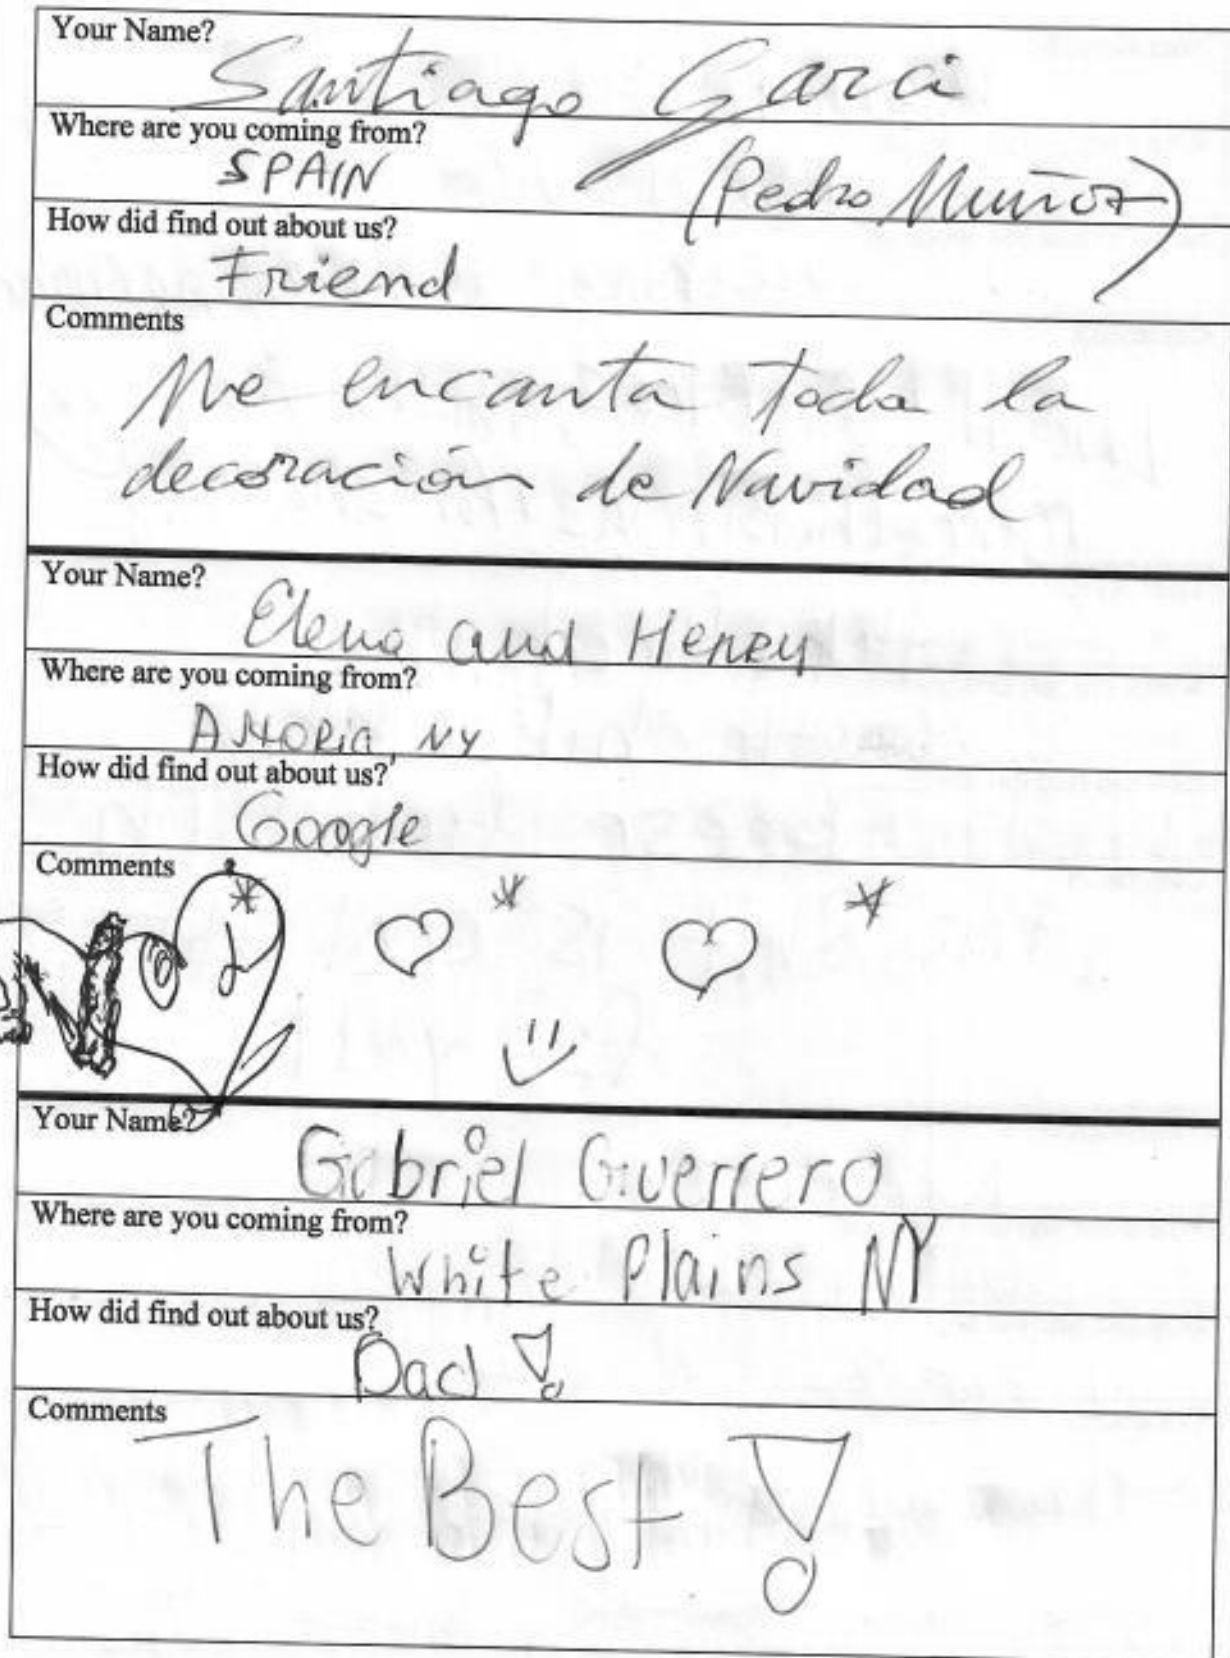 Your Name?
Santiago Garci
Where are you coming from?
SPAIN (Pedro Muñoz)
How did find out about us?
Friend
Comments
Me encanta toda la
decoración de Navidad
Your Name?
Elena and Henry
Where are you coming from?
Astoria, NY
How did find out about us?
Google
Comments
Your Name?
Gabriel Guerrero
Where are you coming from?
White Plains NY
How did find out about us?
Dad!
Comments
The Best!